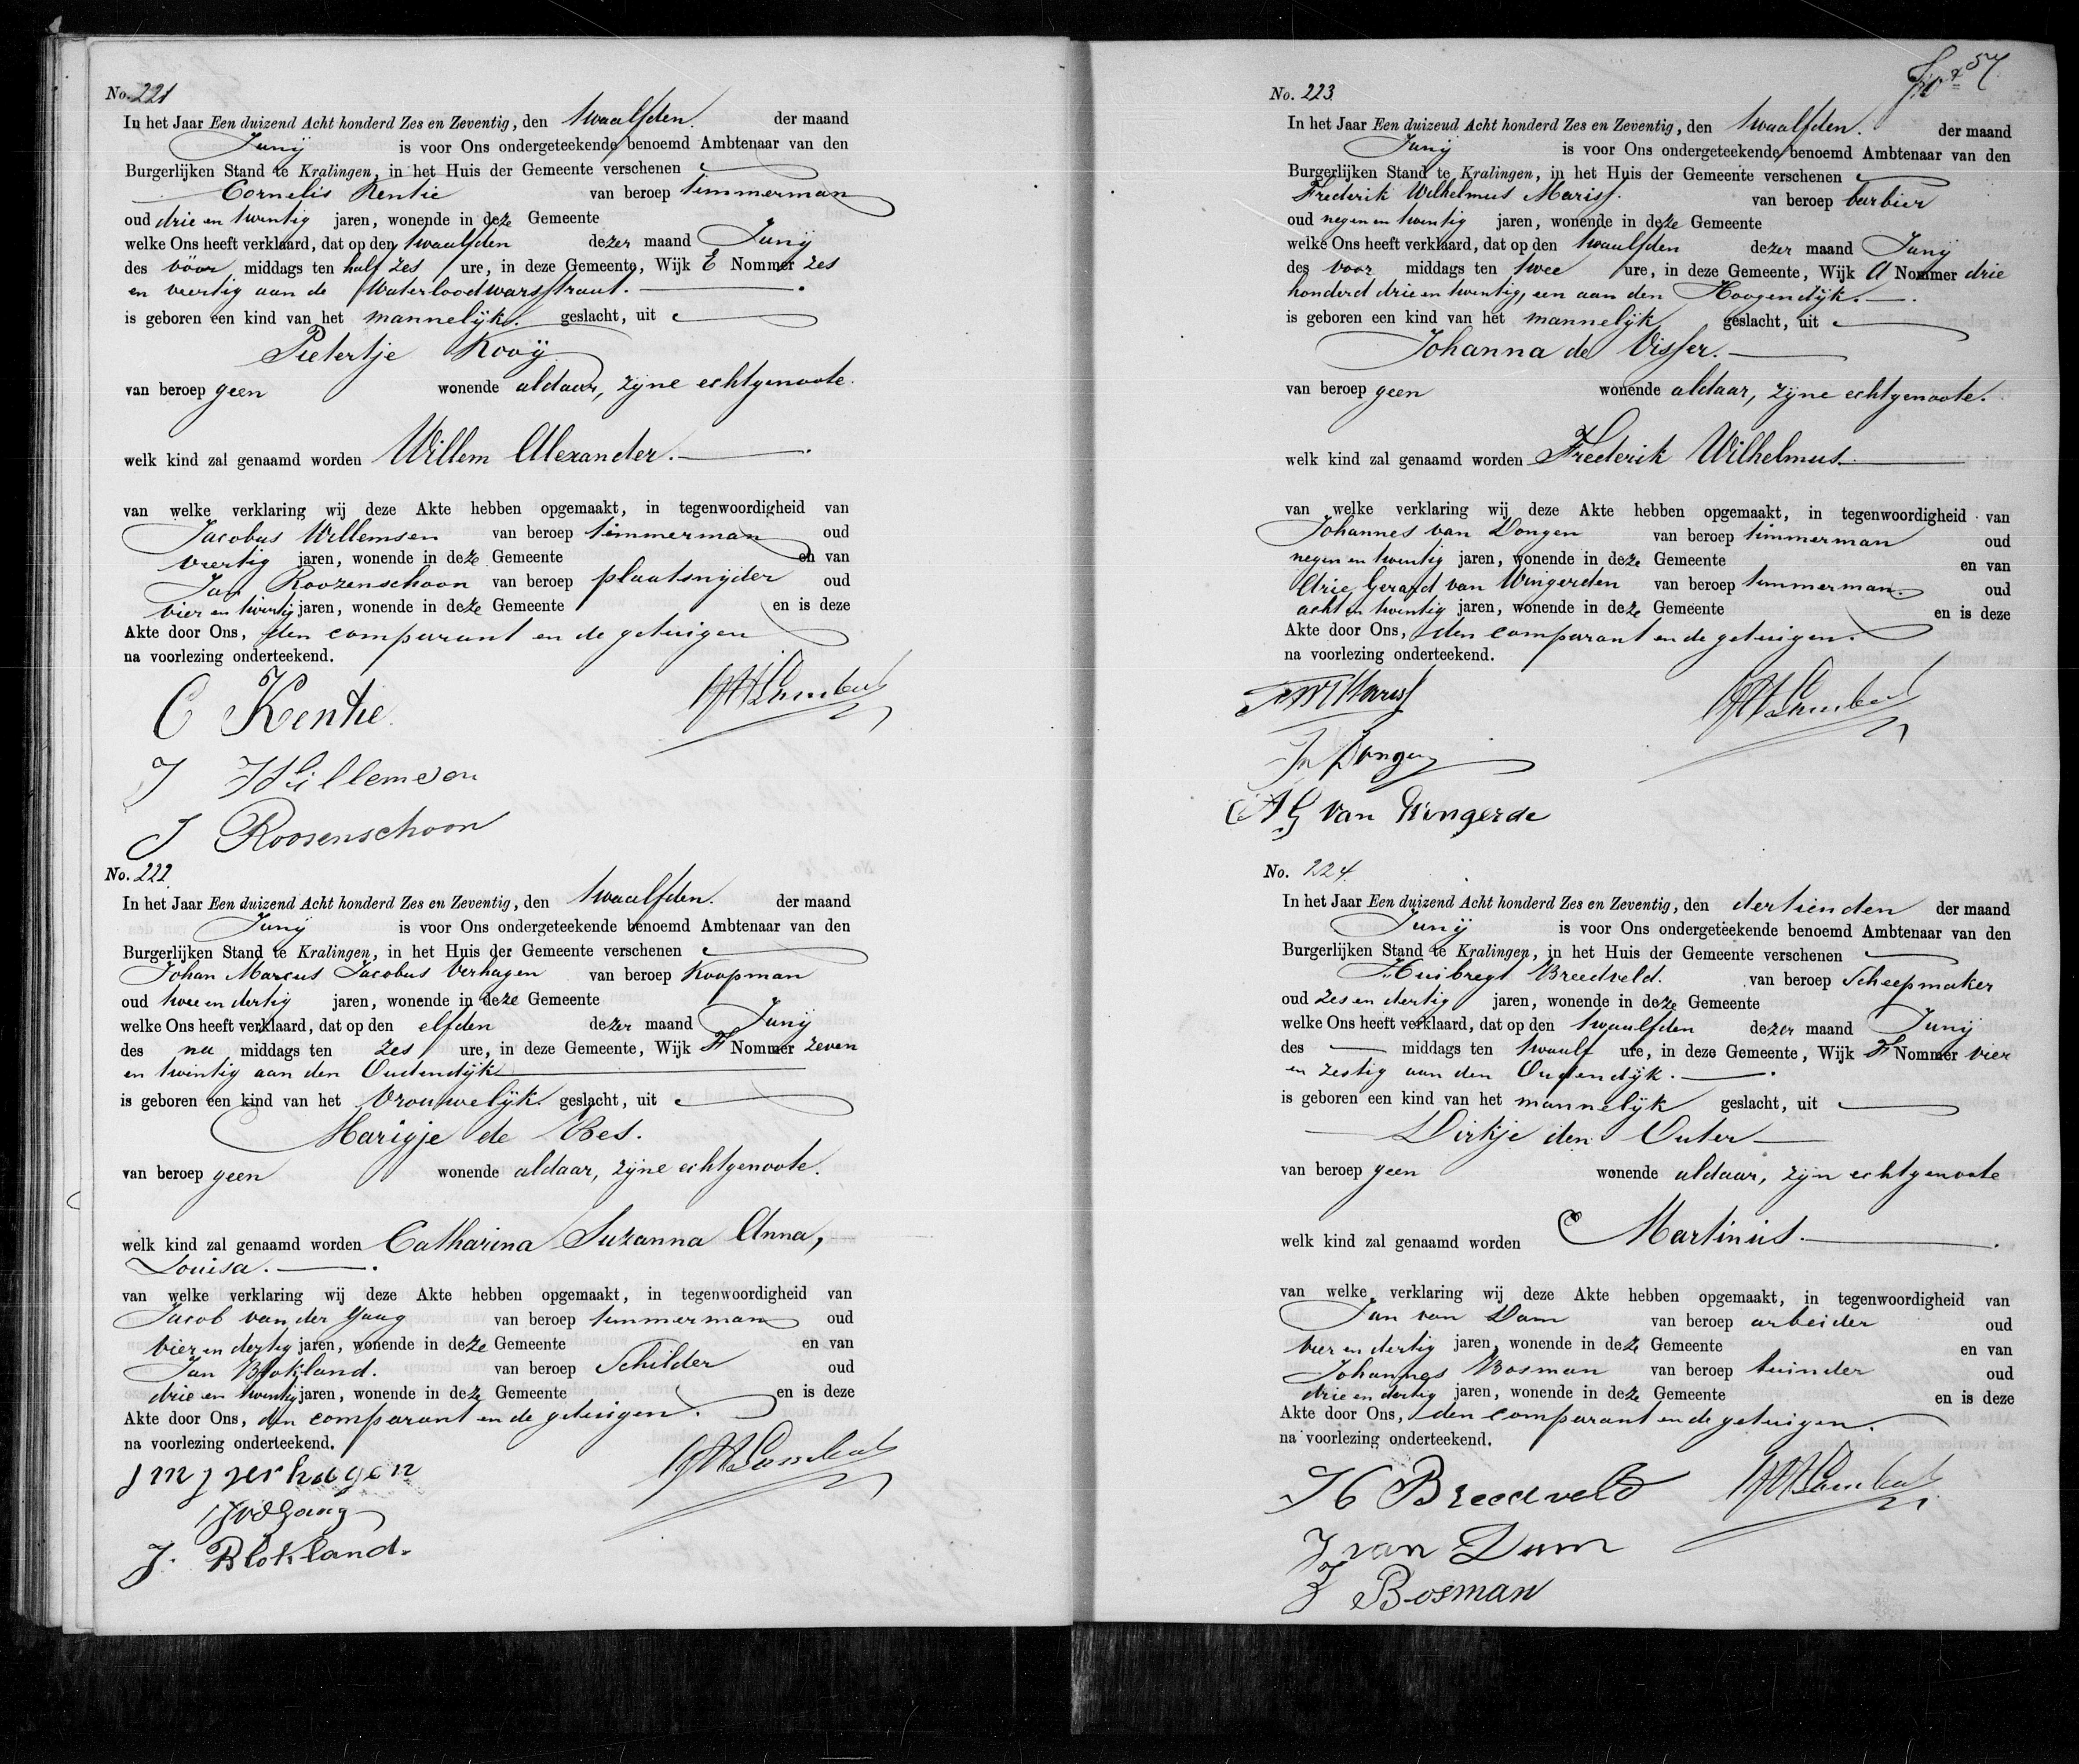 No. 221
In het Jaar Een duizend Acht honderd Zes en Zeventig, den twaalfden. der maand
Junij is voor Ons ondergeteekende benoemd Ambtenaar van den
Burgerlijken Stand te Kralingen, in het Huis der Gemeente verschenen
Cornelis Kentie van beroep timmerman
oud drie en twintig jaren, wonende in deze Gemeente
welke Ons heeft verklaard, dat op den twaalfden dezer maand Junij
des vóór middags ten half zes ure, in deze Gemeente, Wijk E Nommer zes
en veertig aan de Waterloodwarsstraat.
is geboren een kind van het mannelijk. geslacht, uit
Pietertje Kooij
van beroep geen wonende aldaar, zijne echtgenoote.
welk kind zal genaamd worden Willem Alexander.
van welke verklaring wij deze Akte hebben opgemaakt, in tegenwoordigheid van
Jacobus Willemsen van beroep timmerman oud
veertig jaren, wonende in deze Gemeente en van
Jan Roozenschoon van beroep plaatsnijder oud
vier en twintig jaren, wonende in deze Gemeente en is deze
Akte door Ons, den comparant en de getuigen
na voorlezing onderteekend.
C Kentie
J Willemsen
J Roosenschoon
No. 222
In het Jaar Een duizend Acht honderd Zes en Zeventig, den twaalfden. der maand
Junij is voor Ons ondergeteekende benoemd Ambtenaar van den
Burgerlijken Stand te Kralingen, in het Huis der Gemeente verschenen
Johan Marcus Jacobus Verhagen van beroep Koopman
oud twee en dertig jaren, wonende in deze Gemeente
welke Ons heeft verklaard, dat op den elfden dezer maand Junij
des na middags ten zes ure, in deze Gemeente, Wijk F Nommer zeven
en twintig aan den Oudendijk
is geboren een kind van het vrouwelijk geslacht, uit
Marigje de Bes.
van beroep geen wonende aldaar, zijne echtgenoote.
welk kind zal genaamd worden Catharina Suzanna Anna,
Louisa.
van welke verklaring wij deze Akte hebben opgemaakt, in tegenwoordigheid van
Jacob van der Gaag van beroep timmerman oud
vier en dertig jaren, wonende in deze Gemeente en van
Jan Blokland. van beroep Schilder oud
drie en twintig jaren, wonende in deze Gemeente en is deze
Akte door Ons, den comparant en de getuigen.
na voorlezing onderteekend.
J M J Verhagen
J vd Gaag
J. Blokland.
57
No. 223
In het Jaar Een duizend Acht honderd Zes en Zeventig, den twaalfden. der maand
Junij is voor Ons ondergeteekende benoemd Ambtenaar van den
Burgerlijken Stand te Kralingen, in het Huis der Gemeente verschenen
Frederik Wilhelmus Mariss. van beroep barbier
oud negen en twintig jaren, wonende in deze Gemeente
welke Ons heeft verklaard, dat op den twaalfden dezer maand Junij
des voor middags ten twee ure, in deze Gemeente, Wijk A Nommer drie
honderd drie en twintig, een aan den Hoogendijk.
is geboren een kind van het mannelijk geslacht, uit
Johanna de Visser.
van beroep geen wonende aldaar, zijne echtgenoote.
welk kind zal genaamd worden Frederik Wilhelmus
van welke verklaring wij deze Akte hebben opgemaakt, in tegenwoordigheid van
Johannes van Dongen van beroep timmerman oud
negen en twintig jaren, wonende in deze Gemeente en van
Arie Gerard van Wingerden van beroep timmerman. oud
acht en twintig jaren, wonende in deze Gemeente en is deze
Akte door Ons, den comparant en de getuigen.
na voorlezing onderteekend.
A G van Wingerde
No. 224
In het Jaar Een duizend Acht honderd Zes en Zeventig, den dertienden der maand
Junij is voor Ons ondergeteekende benoemd Ambtenaar van den
Burgerlijken Stand te Kralingen, in het Huis der Gemeente verschenen
Huibregt Breedveld. van beroep Scheepmaker
oud zes en dertig jaren, wonende in deze Gemeente
welke Ons heeft verklaard, dat op den twaalfden dezer maand Junij
des middags ten twaalf ure, in deze Gemeente, Wijk F Nommer vier
en zestig aan den Oudendijk.
is geboren een kind van het mannelijk geslacht, uit
Dirkje den Outer
van beroep geen wonende aldaar, zijn echtgenoote
welk kind zal genaamd worden Martinus.
van welke verklaring wij deze Akte hebben opgemaakt, in tegenwoordigheid van
Jan van Dam van beroep arbeider oud
vier en dertig jaren, wonende in deze Gemeente en van
Johannes Bosman van beroep tuinder oud
drie en dertig jaren, wonende in deze Gemeente en is deze
Akte door Ons, den comparant en de getuigen.
na voorlezing onderteekend.
H Breedveld
J van Dam
J Bosman